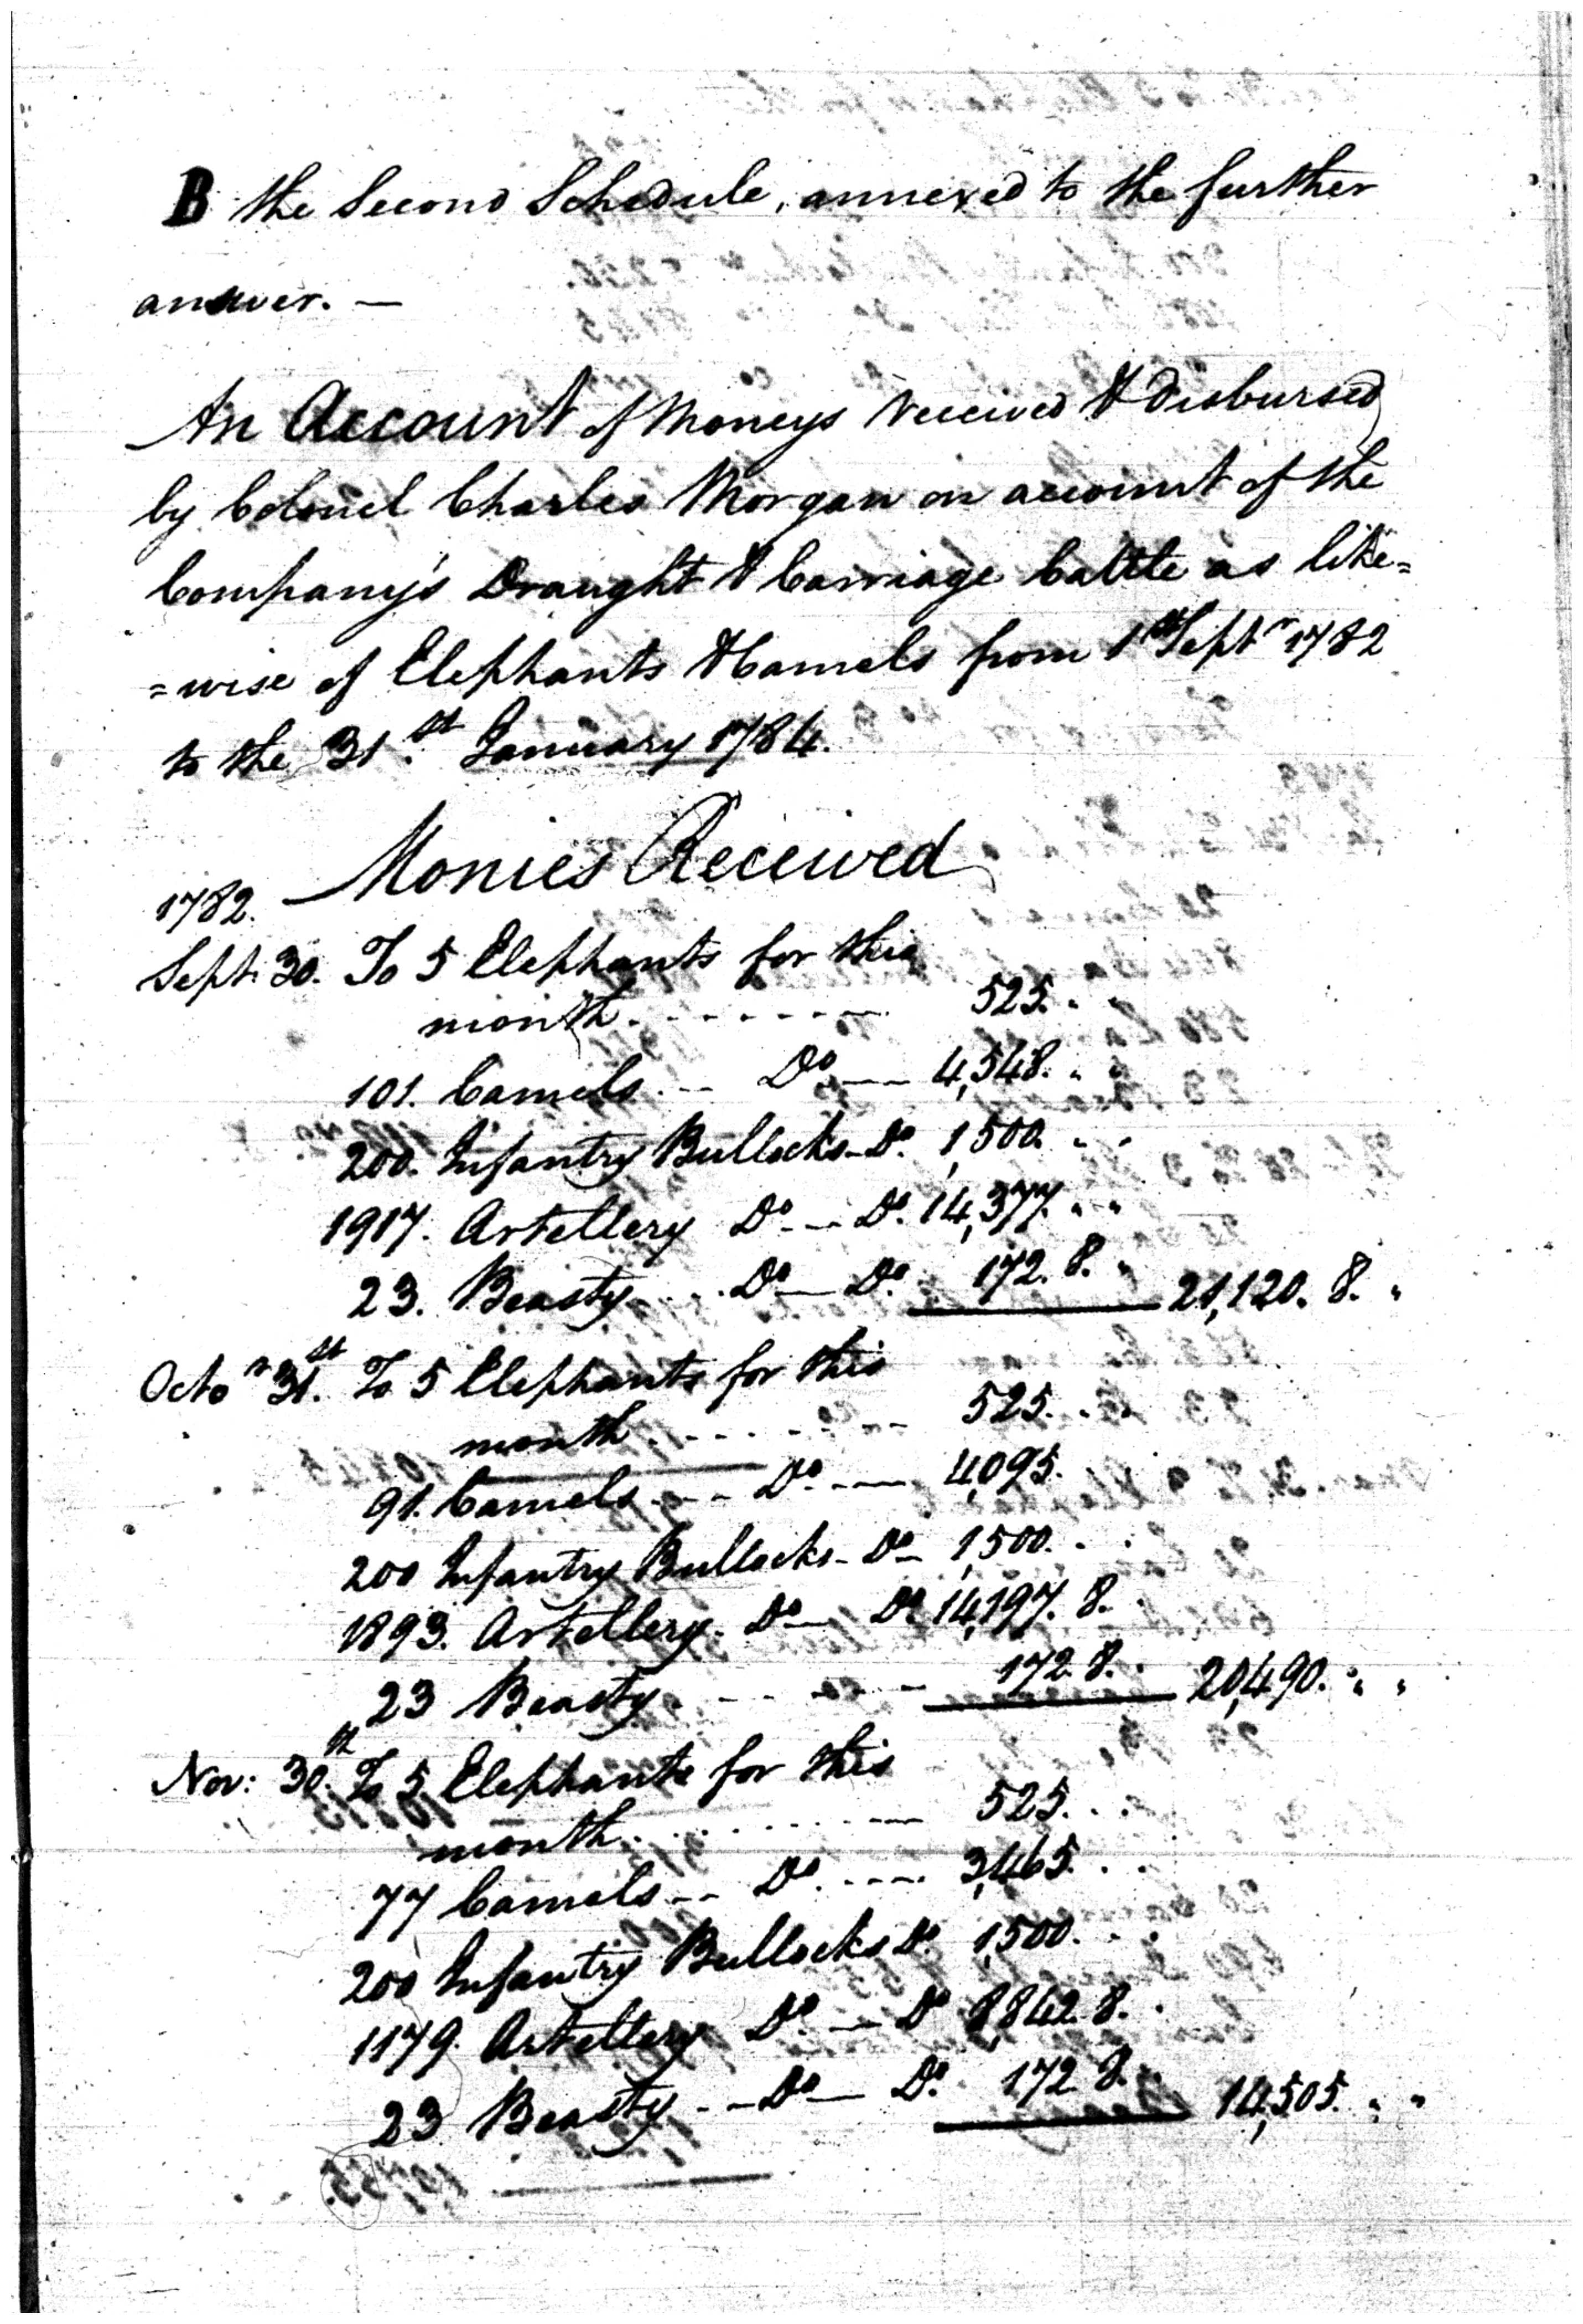 B the Second Schedule, annexed to the further
answer. —
An Account of Moneys received & disbursed
by Colonel Charles Morgan on account of the
Company's Draught & Carriage Cattle as like=
=wise of Elephants & Camels from 1st Septr 1782
to the 31st January 1784.
Monies Received
1782.
Sept. 30. To 5 Elephants for this
month - - - - - - - 525. " "
101. Camels - - Do — 4,548. " "
200. Infantry Bullocks - Do. 1,500. " "
1917. Artellery Do - - Do. 14,377. " "
23. Beasty - - Do — Do. 172. 8. " 21,120. 8. "
Octor 31st. To 5 Elephants for this
month - - - - - - - 525. . .
91. Camels - - - Do. — 4,095.
200 Infantry Bullocks - Do - 1,500. . .
1893. Artellery. Do — Do 14,197. 8. .
23 Beasty. - - - - - 172. 8. . 20,490. " "
Nov: 30th. To 5 Elephants for this
month. . . . . . . . — 525. . .
77 Camels - - Do. - - - - 3,465. . .
200 Infantry Bullocks Do. 1,500. . .
1179. Artellery Do. — Do 8,842. 8. .
23 Beasty - - Do — Do. 172. 8. . 14,505. " "